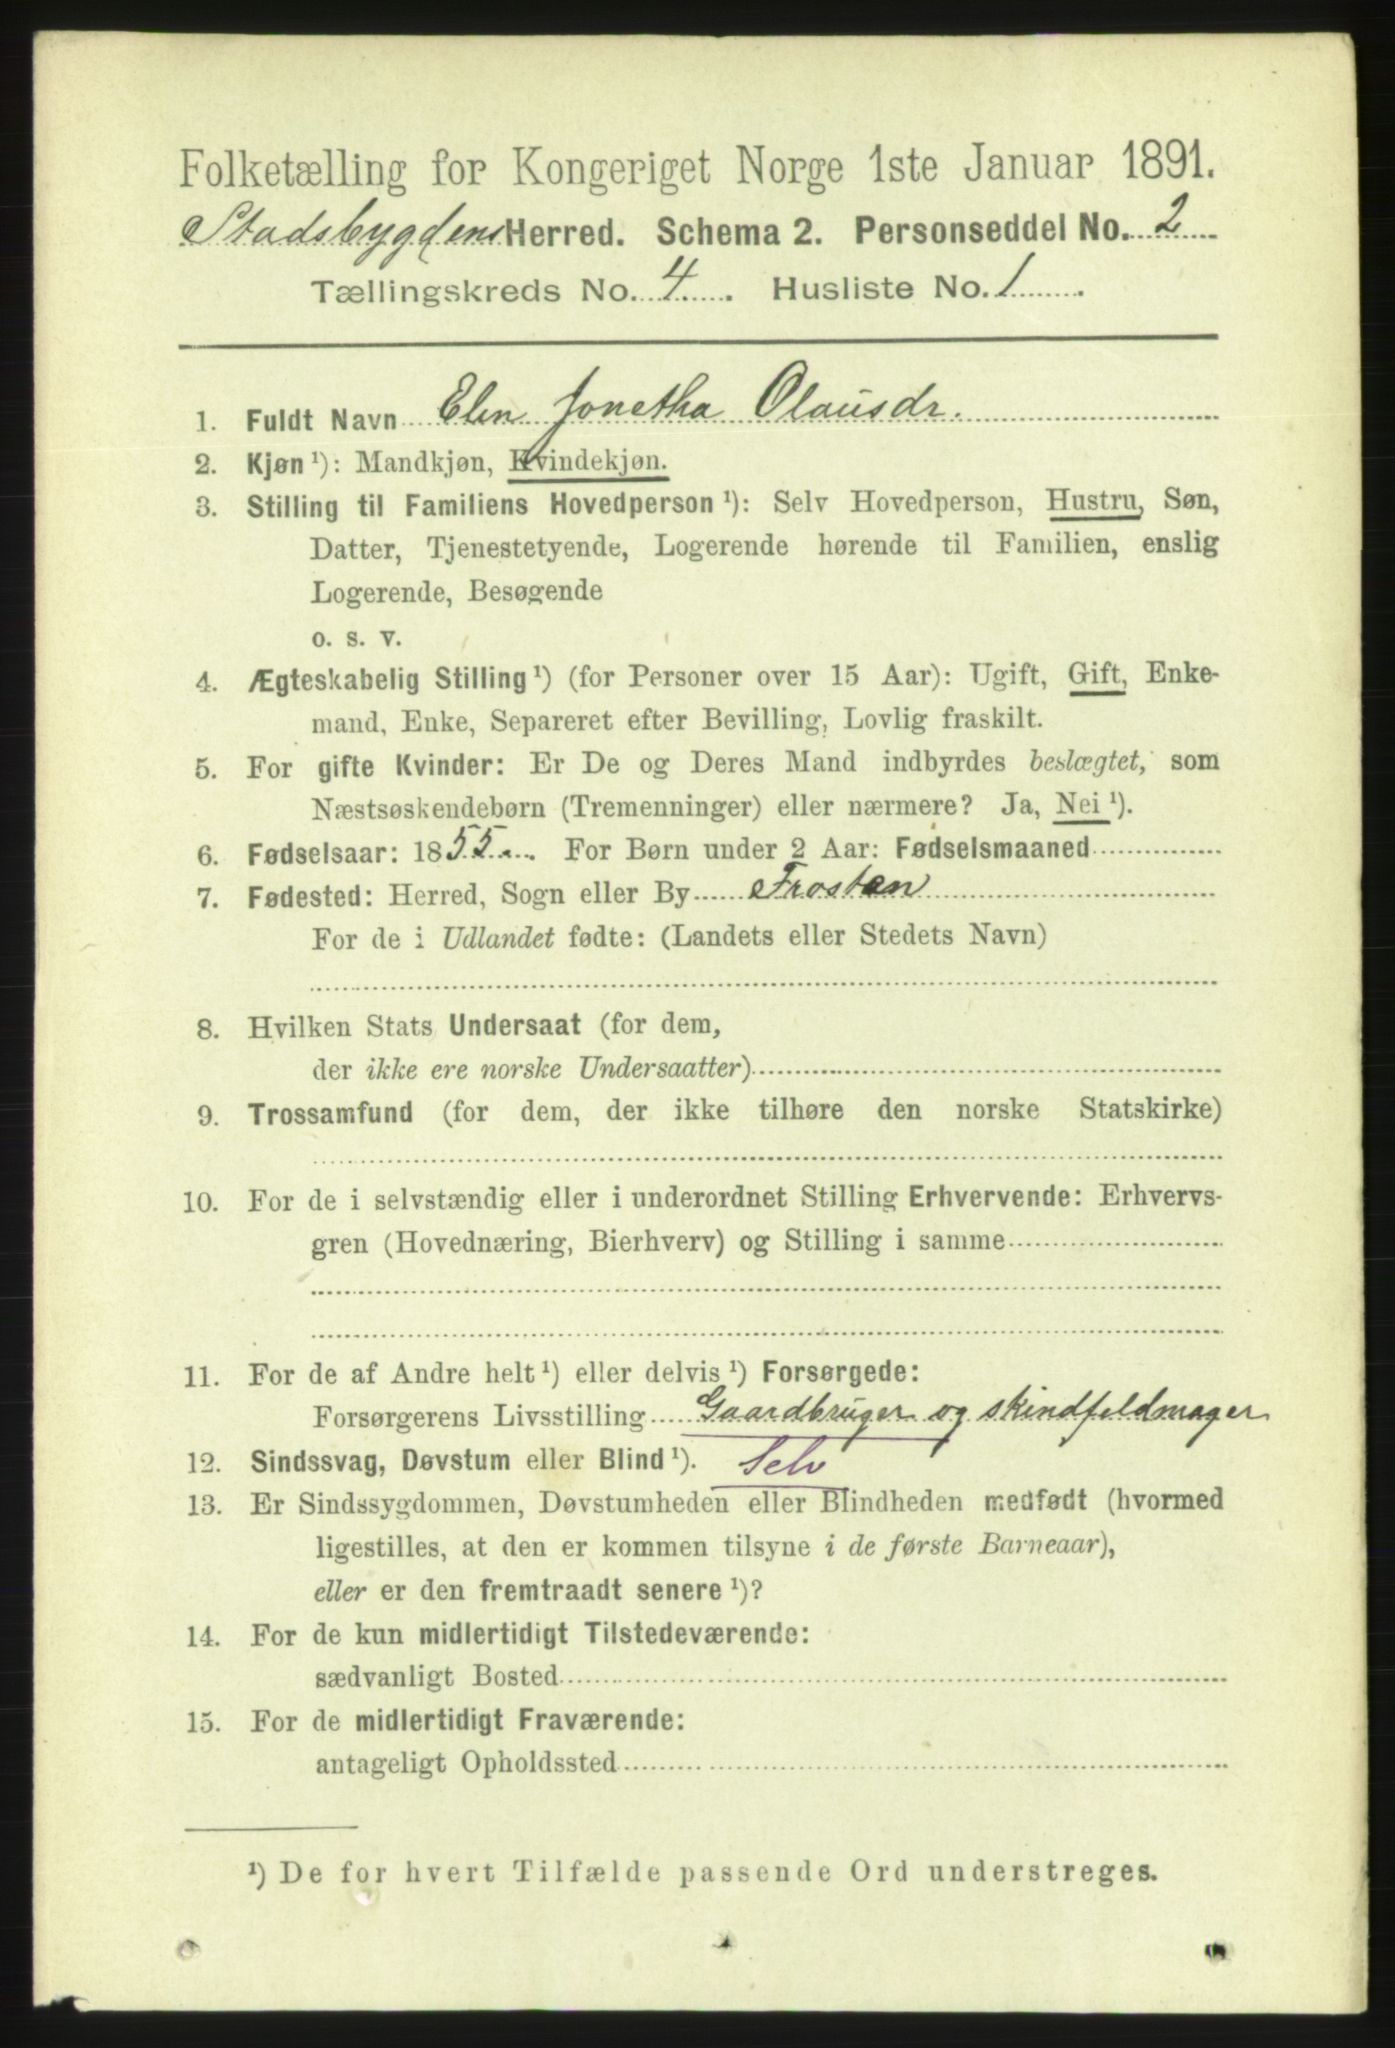 Folketælling for Kongeriget Norge 1ste Januar 1891.
Stadsbygdens Herred. Schema 2. Personseddel No. 2
Tællingskreds No. 4. Husliste No. 1.
1. Fuldt Navn Elen Jonetha Olausdr.
2. Kjøn ¹): Mandkjøn, Kvindekjøn.
3. Stilling til Familiens Hovedperson ¹): Selv Hovedperson, Hustru, Søn,
Datter, Tjenestetyende, Logerende hørende til Familien, enslig
Logerende, Besøgende
o. s. v.
4. Ægteskabelig Stilling ¹) (for Personer over 15 Aar): Ugift, Gift, Enke-
mand, Enke, Separeret efter Bevilling, Lovlig fraskilt.
5. For gifte Kvinder: Er De og Deres Mand indbyrdes beslægtet, som
Næstsøskendebørn (Tremenninger) eller nærmere? Ja, Nei ¹).
6. Fødselsaar: 1855. For Børn under 2 Aar: Fødselsmaaned
7. Fødested: Herred, Sogn eller By Frosten
For de i Udlandet fødte: (Landets eller Stedets Navn)
8. Hvilken Stats Undersaat (for dem,
der ikke ere norske Undersaatter)
9. Trossamfund (for dem, der ikke tilhøre den norske Statskirke)
10. For de i selvstændig eller i underordnet Stilling Erhvervende: Erhvervs-
gren (Hovednæring, Bierhverv) og Stilling i samme
11. For de af Andre helt ¹) eller delvis ¹) Forsørgede:
Forsørgerens Livsstilling Gaardbruger og skindfeldmager
12. Sindssvag, Døvstum eller Blind ¹). Selv
13. Er Sindssygdommen, Døvstumheden eller Blindheden medfødt (hvormed
ligestilles, at den er kommen tilsyne i de første Barneaar),
eller er den fremtraadt senere ¹)?
14. For de kun midlertidigt Tilstedeværende:
sædvanligt Bosted
15. For de midlertidigt Fraværende:
antageligt Opholdssted
¹) De for hvert Tilfælde passende Ord understreges.